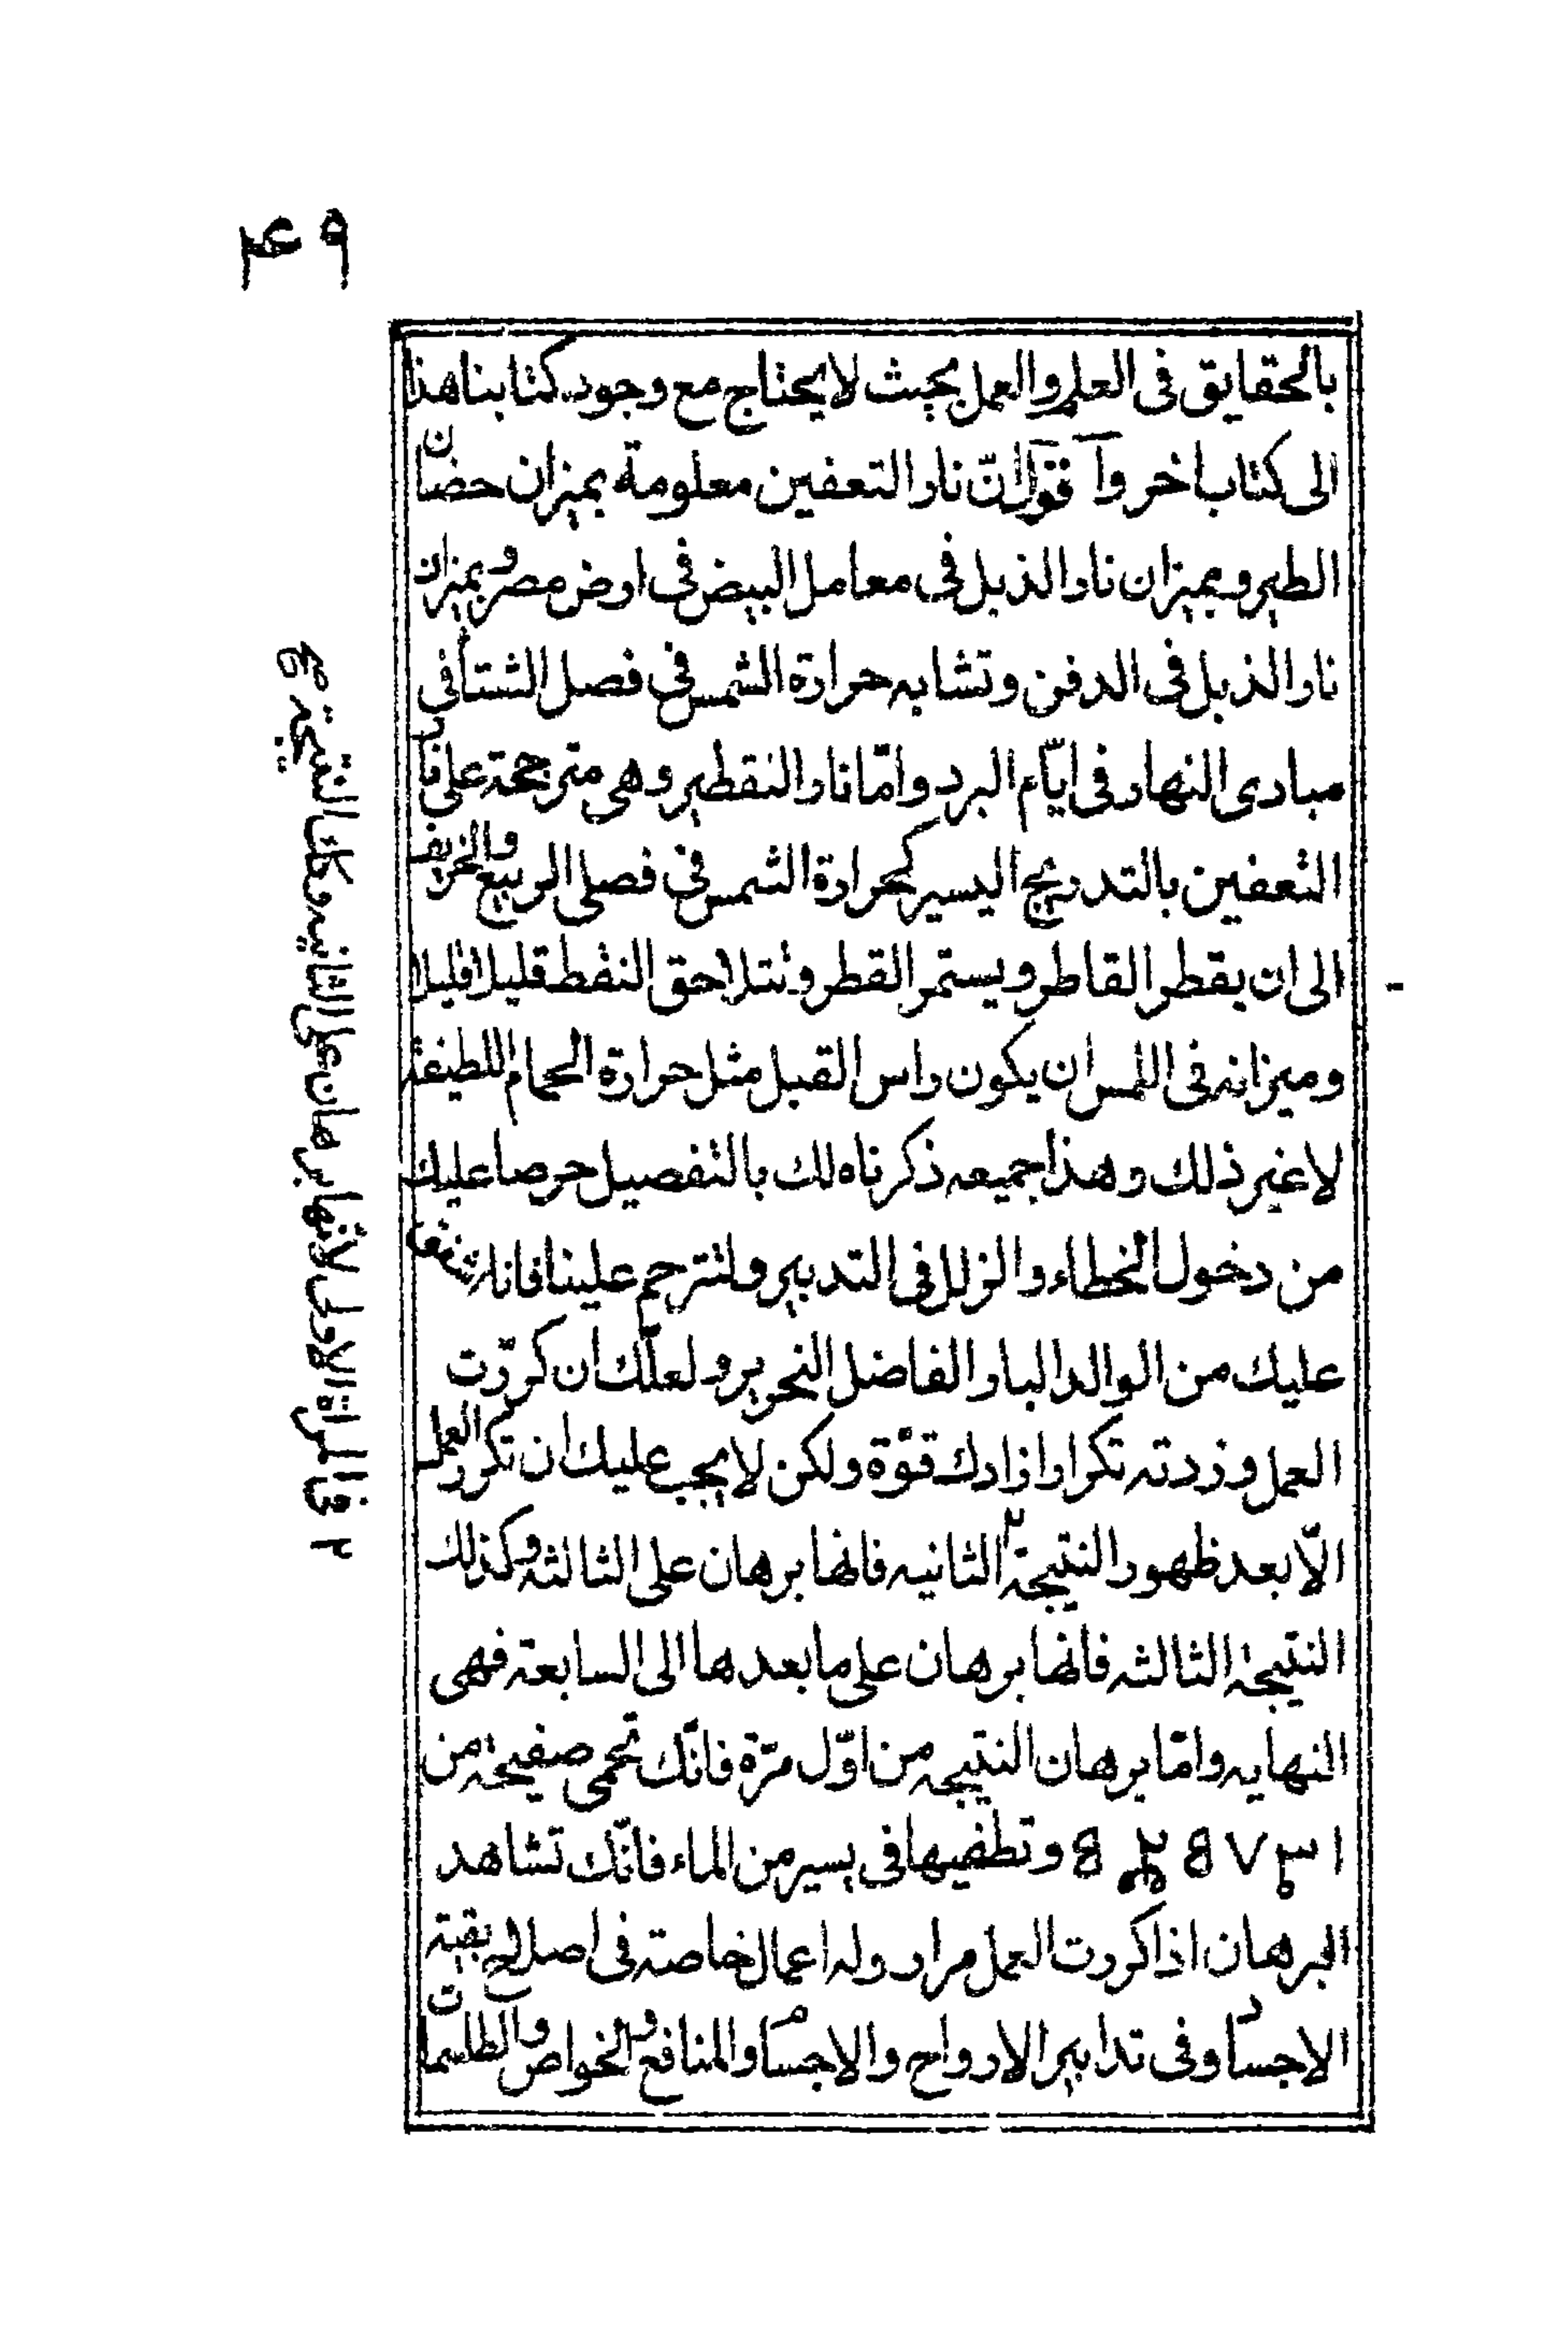 ۴۹
بالحقايق فى العلم والعمل بحيث لا يحتاج مع وجود كتابنا هذا
الى كتاب اخر وآ قول انّ نار التعفين معلومة بميزان حضان
الطير وبميزان نار الذبل فى معامل البيض فى ارض مصر وبميزان
نار الذبل فى الدفن وتشابه حرارة الشمس فى فصل الشتأ فى
مبادى النهار فى ايّام البرد وامّا نار التقطير وهى مترجحة على نار
التعفين بالتدريج اليسير كحرارة الشمس فى فصلى الربيع والخريف
الى ان يقطر القاطر ويستمر القطر وتتلاحق النقط قليلا قليلا
وميزانه فى اللمس ان يكون راس القبل مثل حرارة الحمام اللطيفة
لا غير ذلك وهذا جميعه ذكرناه لك بالتفصيل حرصا عليك
من دخول الخطاء والزلل فى التدبير ولتترحم علينا فانا
عليك من الوالد البار الفاضل النحرير ولعلّك ان كرّرت
العمل وزدته تكرارا زادك قوّة ولكن لا يجب عليك ان تكرر العمل
الّا بعد ظهور النتيجة ٢ الثانيه فانها برهان على الثالثه وكذلك
النتيجة الثالثه فانها برهان على ما بعدها الى السابعة فهى
النهايه وامّا برهان النتيجه من اوّل مرّة فانّك تحمى صفيحة من
وتطفيها فى يسير من الماء فانّك تشاهد
البرهان اذا كررت العمل مرار وله اعمال خاصته فى اصلاح بقية
الاجساد وفى تدابير الارواح والاجسام والمنافع والخواص والطلسمات
٢ فى المراة الاولى لانها برهان على الثانيه وكك النتيجة ع